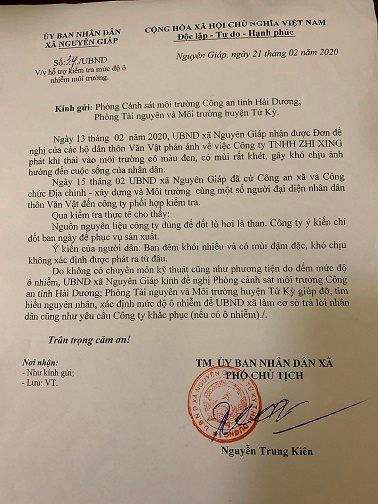 ỦY BAN NHÂN DÂN
XÃ NGUYÊN GIÁP
CỘNG HÒA XÃ HỘI CHỦ NGHĨA VIỆT NAM
Độc lập - Tự do - Hạnh phúc
Số: /UBND
V/v hỗ trợ kiểm tra mức độ ô
nhiễm môi trường.
Nguyên Giáp, ngày 21 tháng 02 năm 2020
Kính gửi: Phòng Cảnh sát môi trường Công an tỉnh Hải Dương;
Phòng Tài nguyên và Môi trường huyện Tứ Kỳ.
Ngày 13 tháng 02 năm 2020, UBND xã Nguyên Giáp nhận được Đơn đề
nghị của các hộ dân thôn Văn Vật phản ánh về việc Công ty TNHH ZHI XING
phát khí thải vào môi trường có màu đen, có mùi rất khét, gây khó chịu ảnh
hưởng đến cuộc sống của nhân dân.
Ngày 15 tháng 02 UBND xã Nguyên Giáp đã cử Công an xã và Công
chức Địa chính - xây dựng và Môi trường cùng một số người đại diện nhân dân
thôn Văn Vật đến công ty phối hợp kiểm tra.
Qua kiểm tra thực tế cho thấy:
Nguồn nguyên liệu công ty dùng để đốt lò hơi là than. Công ty ý kiến chỉ
đốt ban ngày để phục vụ sản xuất.
Ý kiến của người dân: Ban đêm khói nhiều và có mùi đậm đặc, khó chịu
không xác định được phát ra từ đâu.
Do không có chuyên môn kỹ thuật cũng như phương tiện đo đếm mức độ
ô nhiễm, UBND xã Nguyên Giáp kính đề nghị Phòng cảnh sát môi trường Công
an tỉnh Hải Dương; Phòng Tài nguyên và Môi trường huyện Tứ Kỳ giúp đỡ, tìm
hiểu nguyên nhân, xác định mức độ ô nhiễm để UBND xã làm cơ sở trả lời nhân
dân cũng như yêu cầu Công ty khắc phục (nếu có ô nhiễm)./.
Trân trọng cảm ơn!
Nơi nhận:
- Như kính gửi;
- Lưu: VT.
TM. ỦY BAN NHÂN DÂN XÃ
PHÓ CHỦ TỊCH
Nguyễn Trung Kiên